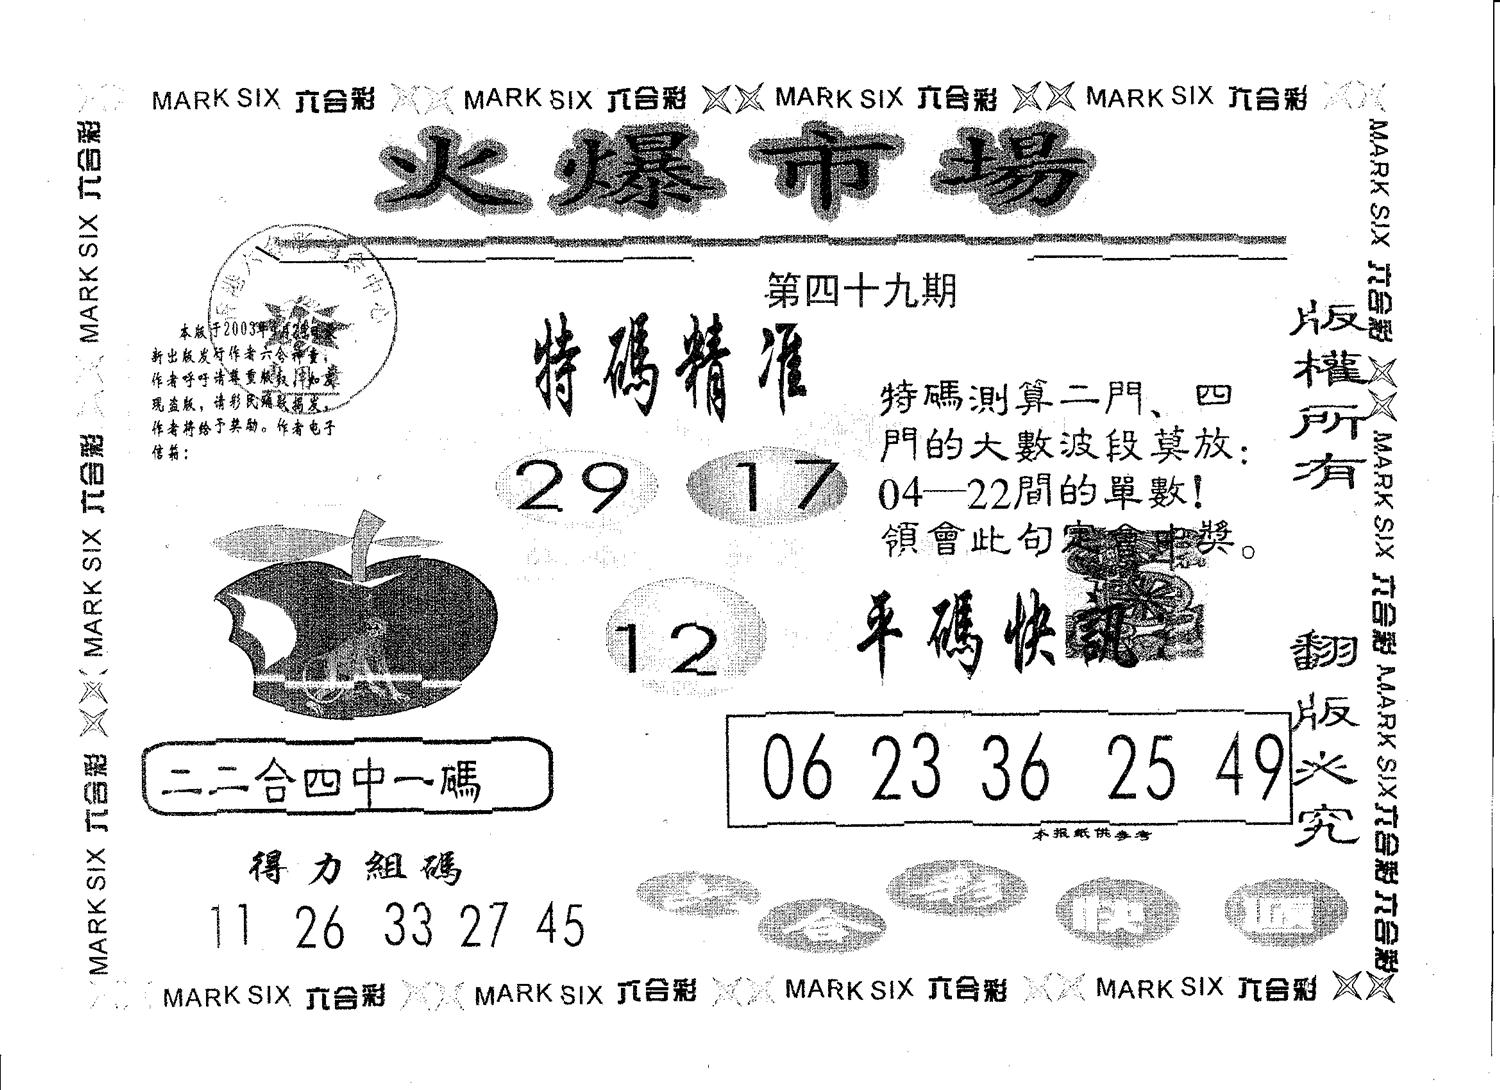 MARK SIX 六合彩 MARK SIX 六合彩 MARK SIX 六合彩 MARK SIX 六合彩
火爆市場
第四十九期
本版于2003年
新出版发行作者六合神童，
作者呼吁请尊重版权，如
现盗版，请彩民踊跃揭发，
作者将给予奖励。作者电子
信箱：
特碼精准
29 17
12
特碼測算二門、四
門的大數波段莫放：
04—22間的單數！
領會此句定會中獎。
平碼快訊
06 23 36 25 49
本报纸供参考
二二合四中一碼
得力組碼
11 26 33 27 45
版權所有
翻版必究
六合彩 MARK SIX 六合彩 MARK SIX 六合彩 MARK SIX
MARK SIX 六合彩 MARK SIX 六合彩 MARK SIX 六合彩 六合彩
MARK SIX 六合彩 MARK SIX 六合彩 MARK SIX 六合彩 MARK SIX 六合彩